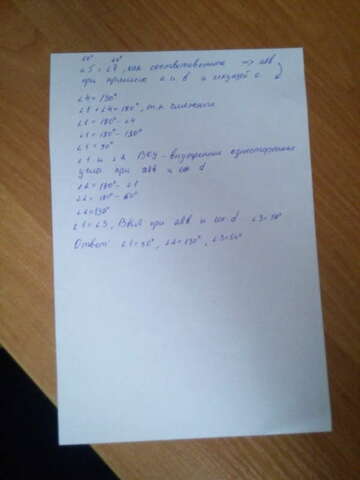 60° 60°
∠5 = ∠7, как соответственные => a||b
при прямых a и b и секущей c.
∠4 = 130°
∠1 + ∠4 = 180°, т.к. смежные
∠1 = 180° - ∠4
∠1 = 180° - 130°
∠1 = 50°
∠1 и ∠2 ВОУ - внутренние односторонние
углы при a||b и сек d
∠2 = 180° - ∠1
∠2 = 180° - 50°
∠2 = 130°
∠1 = ∠3, при a||b и сек d ∠3 = 50°
Ответ: ∠1 = 50°, ∠2 = 130°, ∠3 = 50°